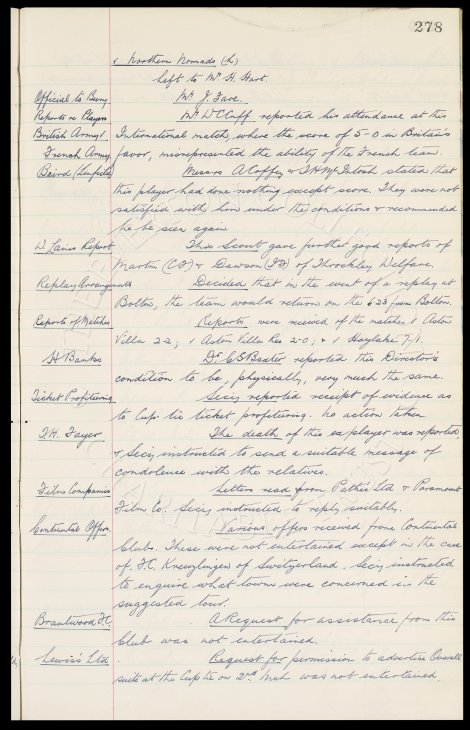 278
v Northern Nomads (h)
Left to Mr H. Hart.
Official to Bury Mr J. Fare.
Reports re Players Mr W Cuff, reported his attendance at this
British Army v International match, where the score of 5-0 in Britain's
French Army favor, misrepresented the ability of the French team.
Baird (Linfield) Messrs A Coffey & T.H. McIntosh stated that
this player had done nothing except score. They were not
satisfied with him under the conditions & recommended
he be seen again
W. Lanes Report This Scout gave further good reports of
Martin & Dawson of Throckley Welfare.
Replay Arrangements Decided that in the event of a replay at
Bolton, the team would return on the 6.23 from Bolton.
Reports of Matches Reports were received of the matches v Aston
Villa 2-2; v Aston Villa Res 2-0; & v Hoylake 7/1.
H. Banks Dr C S Baxter reported this Director's
condition to be, physically, very much the same.
Ticket Profiteering Secy, reported receipt of evidence as
to Cup tie ticket profiteering. No action taken.
The death of this ex player was reported,
& Secy instructed to send a suitable message of
condolence with the relatives.
Films Companies Letters read from Pathes Ltd & Paramount
Film Co. Secy, instructed to reply suitably.
Continental Offers. Various offers received from Continental
Clubs. These were not entertained except in the case
of F.C. Kreuzlingen of Switzerland. Secy instructed
to enquire what towns were concerned in the
suggested tour.
Brantwood F.C. A Request for assistance from this
Club was not entertained.
Lewis's Ltd. Request for permission to advertise Overall
suits at the Cup tie on 2nd Mch was not entertained.